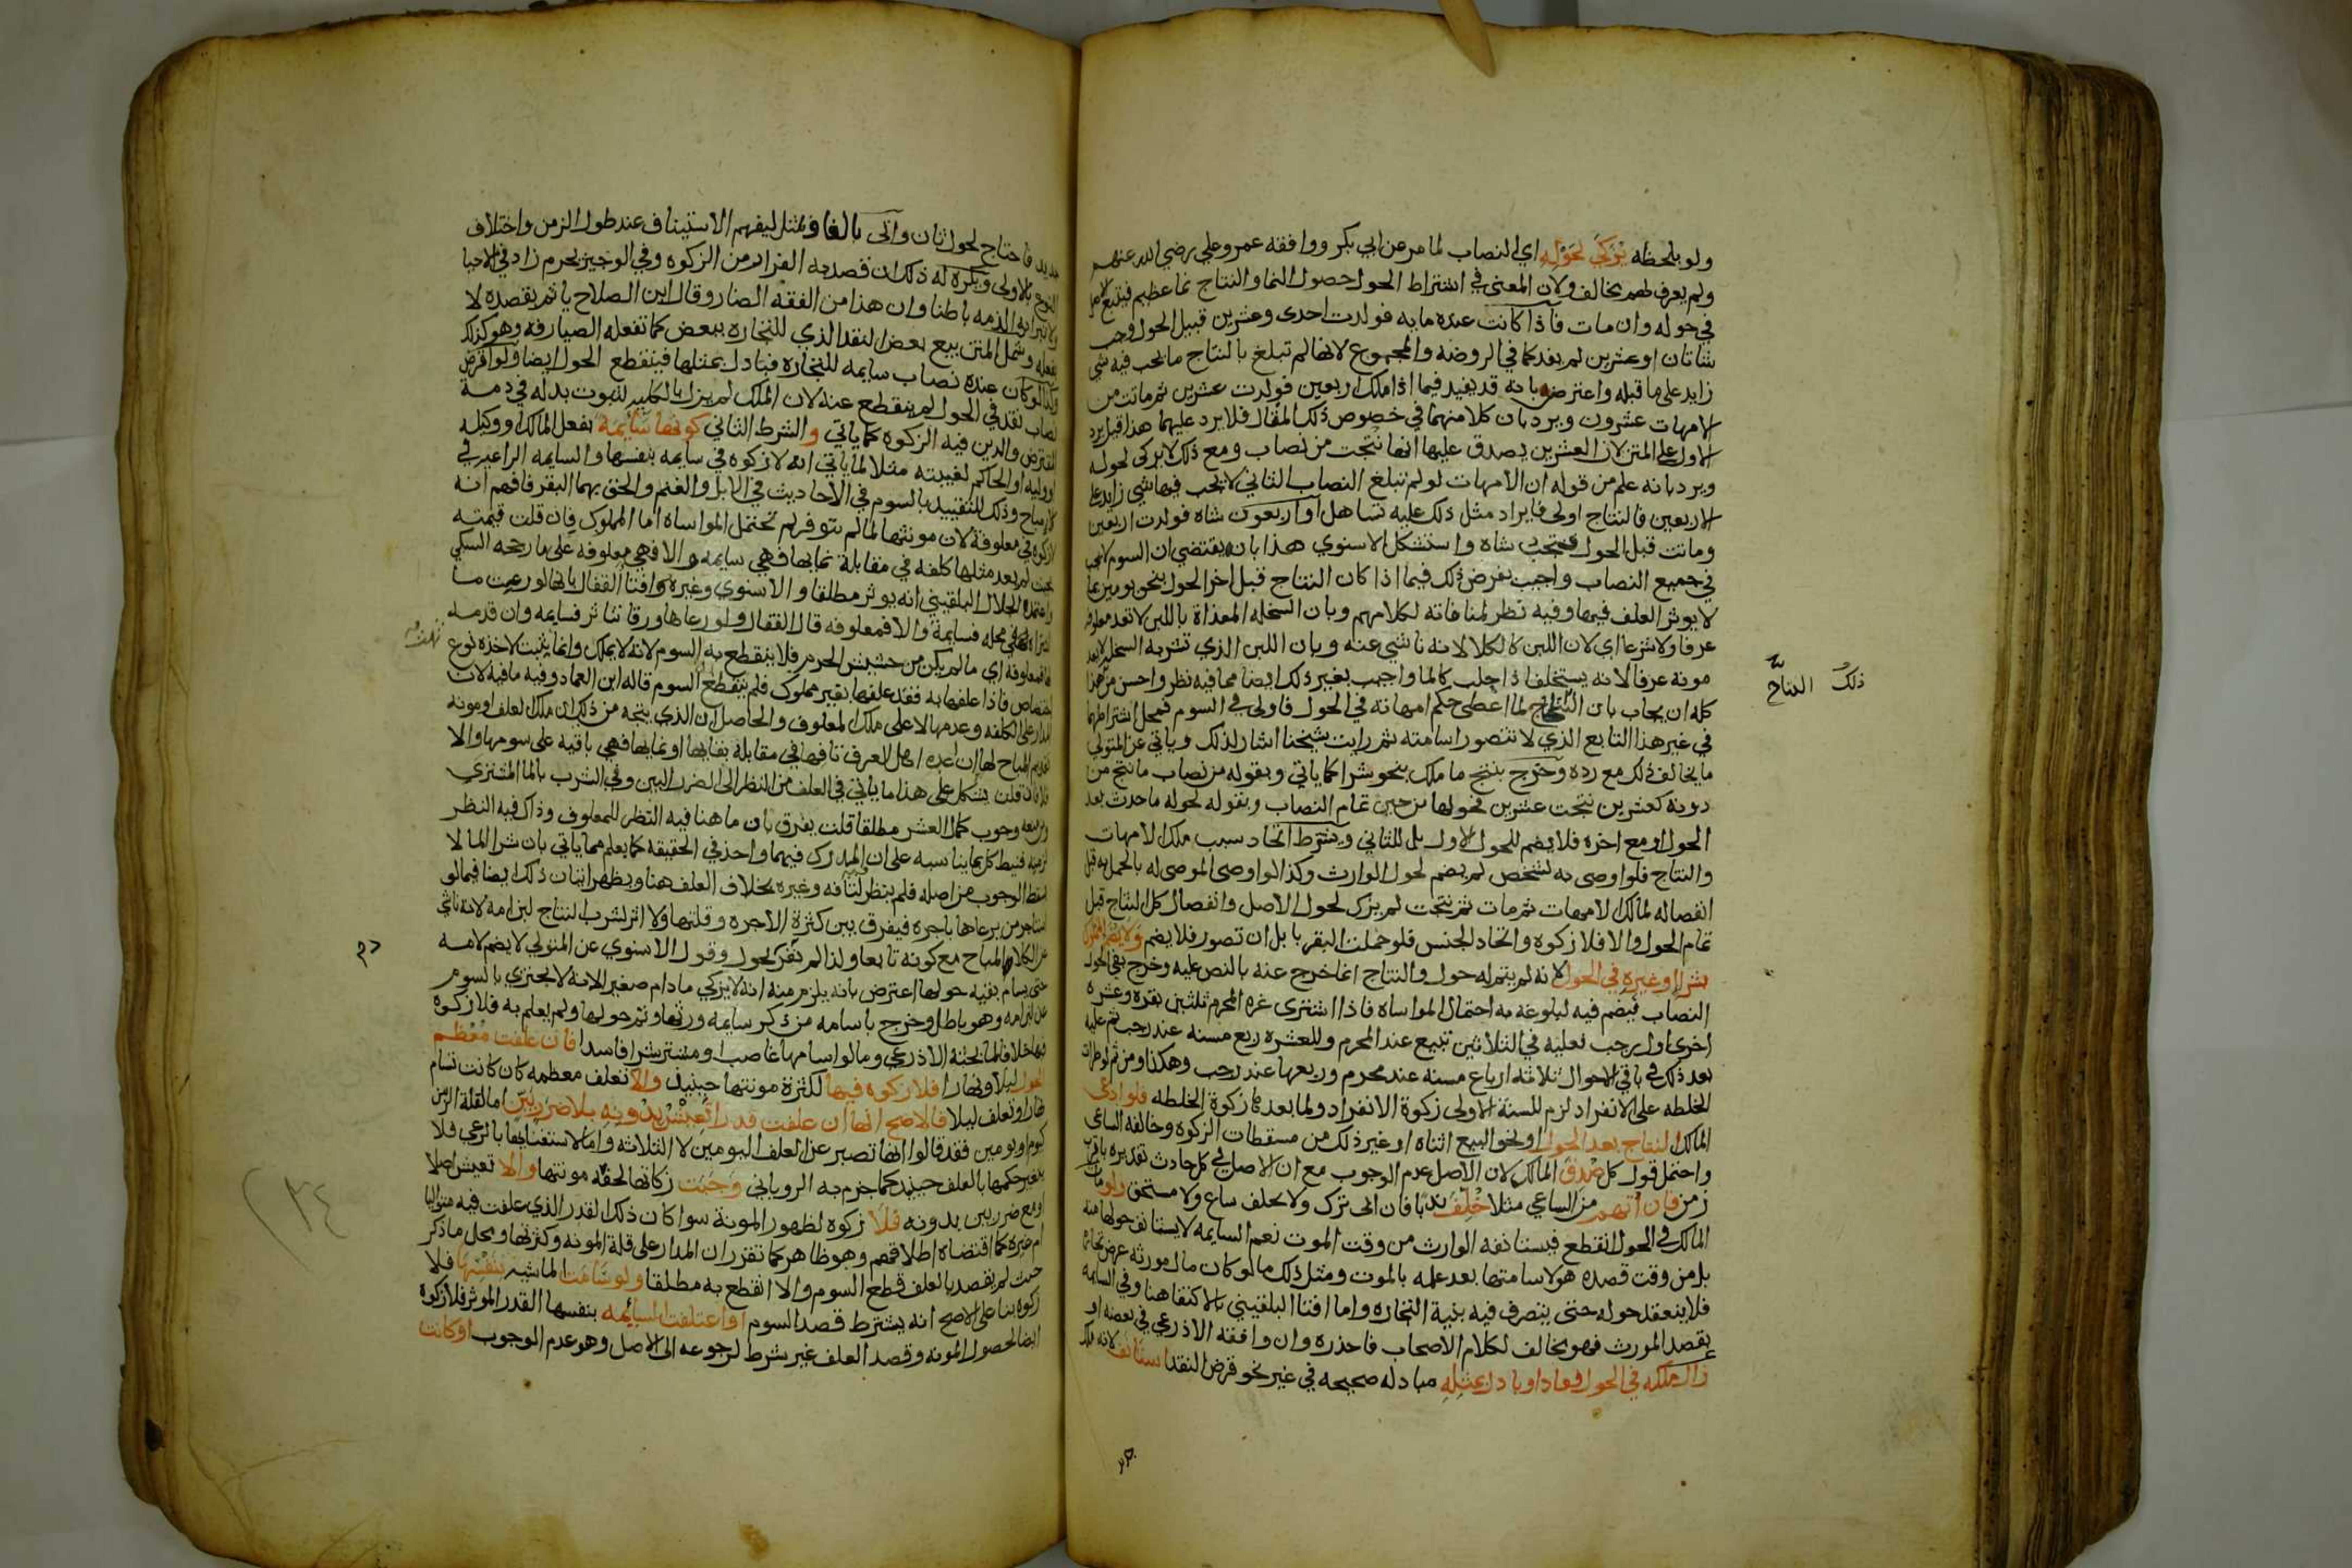 ولو بلحظه يزكي بحوله اي النصاب لما مر عن ابي بكر ووافقه عمر وعلي رضي الله عنهم
ولم يعرف لهم مخالف ولان المعنى في اشتراط الحول حصول النما والنتاج نما عظيم فيتبع الاصل
في حوله وان مات فاذا كانت عنده مايه فولدت احدى وعشرين قبيل الحول وجب
شاتان او عشرين لم يفد كما في الروضه والمجموع لانها لم تبلغ بالنتاج ما يجب فيه شي
زايد على ما قبله واعترض بانه قد يفيد فيما اذا ملك اربعين فولدت عشرين ثم ماتت من
الامهات عشرون ويرد بان كلامنهما في خصوص ذلك المقال فلا يرد عليهما هذا قيل يرد
الاول على المتن لان العشرين يصدق عليها انها نتجت من نصاب ومع ذلك لا يزكى لحوله
ويرد بانه علم من قوله ان الامهات لو لم تبلغ النصاب الثاني لا يجب فيها شي زايد على
الاربعين فالنتاج اولى فايراد مثل ذلك عليه تساهل او اربعون شاه فولدت اربعين
وماتت قبل الحول شاه واستشكل الاسنوي هذا بانه يقتضي ان السوم لا يجب
في جميع النصاب واجيب بفرض ذلك فيما اذا كان النتاج قبل اخر الحول بنحو يومين مما
لا يوثر العلف فيهما وفيه نظر لمنافاته لكلامهم وبان السخله المغذاة باللبن لا تعد معلوفه
عرفا ولا شرعا اي لان اللبن كالكلا لانه ناشي عنه وبان اللبن الذي تشربه السخله لا يعد
مونه عرفا لانه يستخلف اذا حلب كالما واجيب بغير ذلك ايضا مما فيه نظر واحسن من هذا
كله ان يجاب بان النتاج لما اعطي حكم امهاته في الحول فاولى في السوم فمحل اشتراطهما
في غير هذا التابع الذي لا تتصور اسامته ثم رايت شيخنا اشار لذلك وياتي عن المتولي
ما يخالف ذلك مع رده وخرج بنتج ما ملك بنحو شرا كما ياتي وبقوله من نصاب ما نتج من
دونه كعشرين نتجت عشرين فحولها من حين تمام النصاب وبقوله لحوله ما حدث بعد
الحول او مع اخره فلا يضم للحول الاول بل للثاني ويشترط اتحاد سبب ملك الامهات
والنتاج فلو اوصى به لشخص لم يضم لحول الوارث وكذا لو اوصى الموصى له بالحمل به قبل
انفصاله لمالك الامهات ثم مات ثم نتجت لم يزك لحول الاصل وانفصال كل النتاج قبل
تمام الحول والا فلا زكوه واتحاد الجنس فلو حملت البقر بابل ان تصور فلا يضم ولا يضم المملوك
بشرا او غيره في الحول لانه لم يتم له حول والنتاج انما خرج عنه بالنص عليه وخرج بفي الحول
النصاب فيضم فيه لبلوغه به احتمال المواساه فاذا اشترى غره المحرم ثلثين بقره وعشره
اخرى اول رجب فعليه في الثلاثين تبيع عند المحرم وللعشره ربع مسنه عند رجب ثم عليه
بعد ذلك في باقي الاحوال ثلاثه ارباع مسنه عند محرم وربعها عند رجب وهكذا ومن ثم لو طرات
الخلطه على الانفراد لزم للسنة الاولى زكوة الانفراد ولما بعدها زكوة الخلطه فلو ادعى
المالك النتاج بعد الحول او نحو البيع اثناه او غير ذلك من مسقطات الزكوه وخالفه الساعي
واحتمل قول كل صدق المالك لان الاصل عدم الوجوب مع ان الاصل في كل حادث تقديره باقرب
زمن فان اتهم من الساعي مثلا حلف ندبا فان ابى ترك ولا يحلف ساع ولا مستحق ولو مات
المالك في الحول انقطع فيستانفه الوارث من وقت الموت نعم السايمه لا يستانف حولها منه
بل من وقت قصده هو لاسامتها بعد علمه بالموت ومثل ذلك ما لو كان مال مورثه عرض تجاره
فلا ينعقد حوله حتى يتصرف فيه بنية التجاره واما افتا البلقيني بالاكتفا هنا وفي السايمه
بقصد المورث فهو مخالف لكلام الاصحاب فاحذره وان وافقه الاذرعي في بعضه او
زال ملكه في الحول فعاد او بادل بمثله مبادله صحيحه في غير نحو قرض النقد استانف لانه ملك
جديد
ذلك النتاج
جديد فاحتاج لحول ثان واتى بالفا وبمثل ليفهم الاستيناف عند طول الزمن واختلاف
النوع بالاولى ويكره له ذلك ان قصد به الفرار من الزكوه وفي الوجيز يحرم زاد في الاحيا
ولا تبرا به الذمه باطنا وان هذا من الفقه الضار وقال ابن الصلاح ياثم بقصده لا
بفعله وشمل المتن بيع بعض النقد الذي للتجاره ببعض كما تفعله الصيارفه وهو كذلك
وكذا لو كان عنده نصاب سايمه للتجاره فبادل بمثلها فينقطع الحول ايضا ولو اقرض
نصاب نقد في الحول لم ينقطع عنه لان الملك لم يزل بالكليه لثبوت بدله في ذمة
المقترض والدين فيه الزكوه كما ياتي والشرط الثاني كونها سايمه بفعل المالك او وكيله
او وليه او الحاكم لغيبته مثلا لما ياتي انه لا زكوه في سايمه بنفسها والسايمه الراعيه في
كلا مباح وذلك للتقييد بالسوم في الاحاديث في الابل والغنم والحق بهما البقر فافهم انه
لا زكوه في معلوفة لان مونتها لما لم تتوفر لم تحتمل المواساه اما المملوك فان قلت قيمته
بحيث لم يعد مثلها كلفه في مقابلة نمايها فهي سايمه والا فهي معلوفه على ما رجحه السبكي
واعتمد الجلال البلقيني انه يوثر مطلقا والاسنوي وغيره وافتا القفال بانها لو رعيت ما
اشتراه في محله فسايمة والا فمعلوفه قال القفال ولو رعاها ورقا تناثر فسايمه وان قدمه
لها فمعلوفه اي ما لم يكن من حشيش الحرم فلا ينقطع به السوم لانه لا يملك وانما يثبت لاخذه نوع
اختصاص فاذا علفها به فقد علفها بغير مملوك فلم ينقطع السوم قاله ابن العماد وفيه ما فيه لان
المدار على الكلفه وعدمها لا على ملك المعلوف والحاصل ان الذي يتجه من ذلك ان ملك العلف او مونه
تقديم المباح لها ان عده اهل العرف تافها في مقابلة بقايها او نمايها فهي باقيه على سومها والا
فلا فان قلت يشكل على هذا ما ياتي في العلف من النظر الى الضرر البين وفي الشرب بالما المشترى
وربعه وجوب كمال العشر مطلقا قلت يفرق بان ما هنا فيه النظر للمعلوف وذاك فيه النظر
لزمنه فنيط كل بما يناسبه على ان المدرك فيهما واحد في الحقيقه كما يعلم مما ياتي بان شرا الما لا
يسقط الوجوب من اصله فلم ينظر لتافه وغيره بخلاف العلف هنا ويظهر اتيان ذلك ايضا فيما لو
استاجر من يرعاها باجره فيفرق بين كثرة الاجره وقلتها ولا اثر لشرب النتاج لبن امه لانه ناشي
عن الكلا المباح مع كونه تابعا ولذا لم يفرد بحول وقول الاسنوي عن المتولي لا يضم لامه
حتى يسام بقيه حولها اعترض بانه يلزم منه انه لا يزكي ما دام صغيرا لانه لا يجتزي بالسوم
عن لبن امه وهو باطل وخرج باسامه من ذكر سايمه ورثها وتم حولها ولم يعلم به فلا زكوة
فيها خلافا لما بحثه الاذرعي وما لو اسامها غاصب او مشتر بشرا فاسد فان علفت معظم
الحول ليلا ونهارا فلا زكوه فيها لكثرة مونتها حينيذ والا تعلف معظمه كان كانت تسام
نهارا وتعلف ليلا فالاصح انها ان علفت قدرا تعيش بدونه بلا ضرر بين اما لقلة الزمن
كيوم او يومين فقد قالوا انها تصبر عن العلف اليومين لا الثلاثه واما لاستغنايها بالرعي فلا
يتغير حكمها بالعلف حينيذ كما جزم به الروياني وجبت زكاتها لخفة مونتها والا تعيش اصلا
او مع ضرر بين بدونه فلا زكوه لظهور المونة سوا كان ذلك القدر الذي علفت فيه متواليا
ام غيره كما اقتضاه اطلاقهم وهو ظاهر كما تقرر ان المدار على قلة المونه وكثرتها ومحل ما ذكر
حيث لم يقصد بالعلف قطع السوم والا انقطع به مطلقا ولو سامت الماشيه بنفسها فلا
زكوه بنا على الاصح انه يشترط قصد السوم او اعتلفت السايمه بنفسها القدر الموثر فلا زكوة
ايضا لحصول المونه وقصد العلف غير شرط لرجوعه الى الاصل وهو عدم الوجوب او كانت
١٣٤